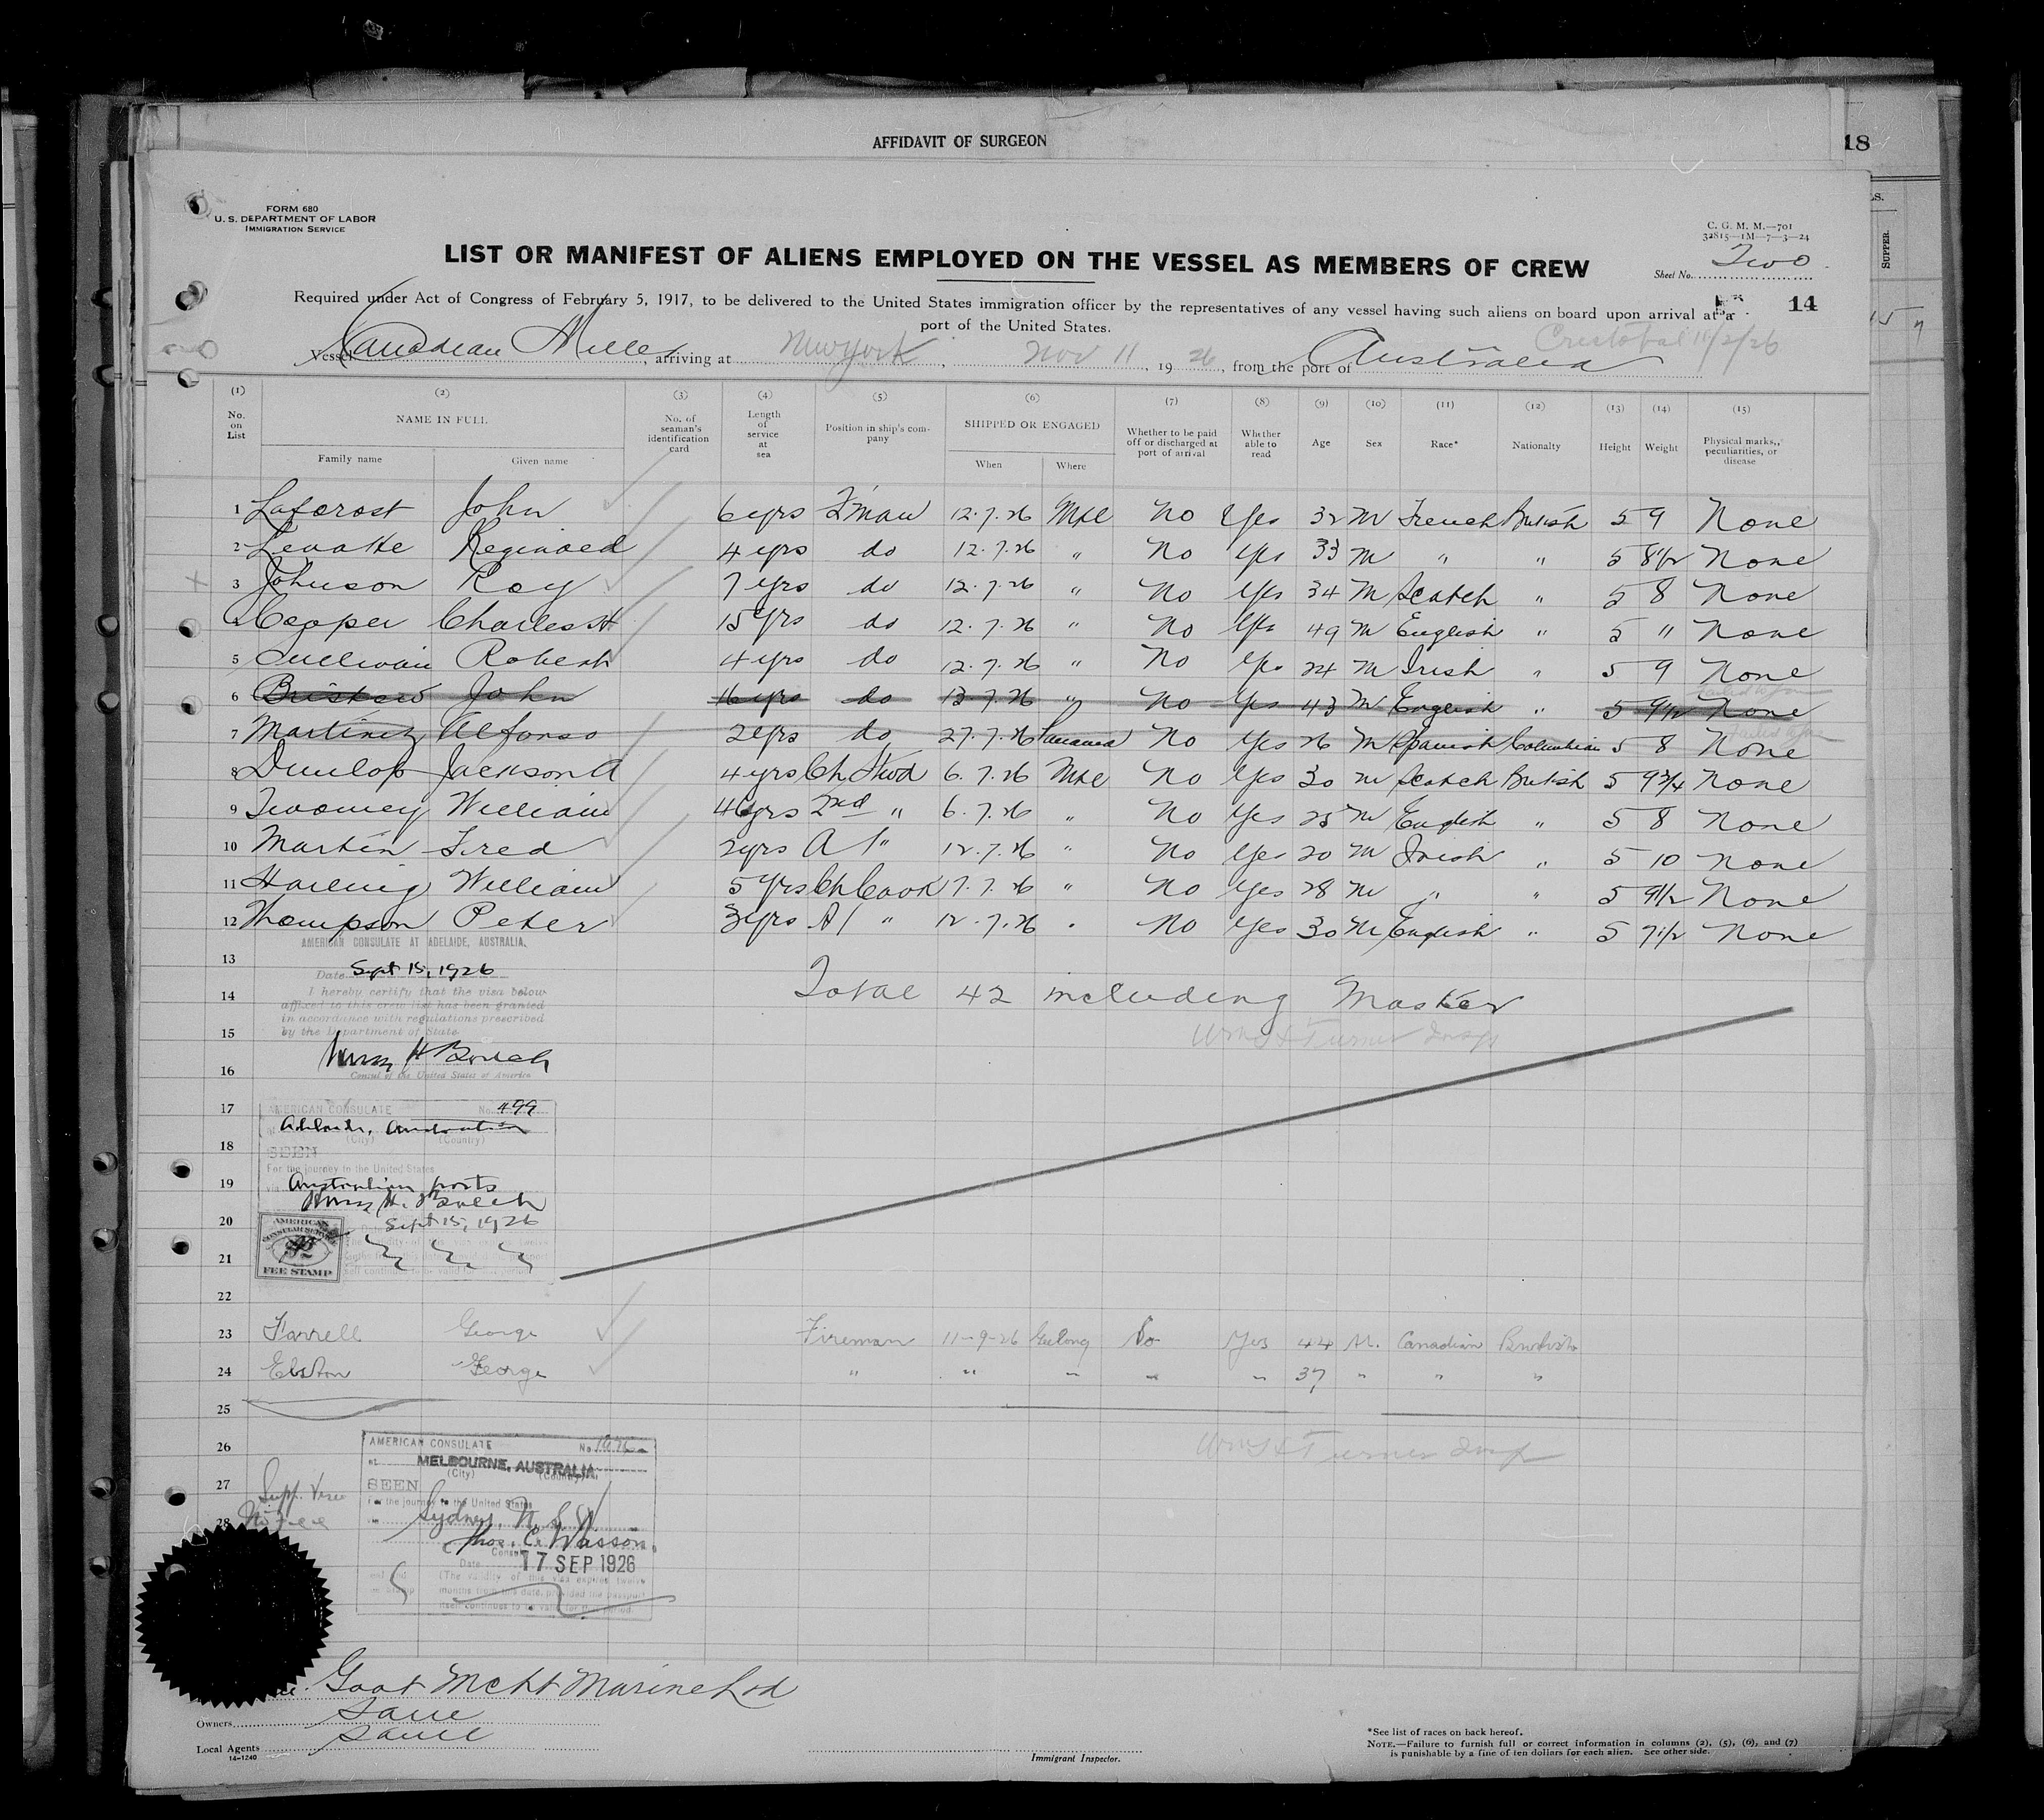 AFFIDAVIT OF SURGEON
18
FORM 680
U. S. DEPARTMENT OF LABOR
IMMIGRATION SERVICE
C. G. M. M.—701
32815—1M—7—3—24
LIST OR MANIFEST OF ALIENS EMPLOYED ON THE VESSEL AS MEMBERS OF CREW
Sheet No. Two
Required under Act of Congress of February 5, 1917, to be delivered to the United States immigration officer by the representatives of any vessel having such aliens on board upon arrival at a
port of the United States.
14
Cristobal 11/2/26
Vessel Canadian Miller, arriving at New York, Nov 11, 1926, from the port of Australia
SUPPER.
(1) (2) (3) (4) (5) (6) (7) (8) (9) (10) (11) (12) (13) (14) (15)
No. on List NAME IN FULL No. of seaman's identification card Length of service at sea Position in ship's company SHIPPED OR ENGAGED Whether to be paid off or discharged at port of arrival Whether able to read Age Sex Race* Nationality Height Weight Physical marks, peculiarities, or disease
Family name Given name When Where
1 John 6 yrs F'man 12.7.26 Mtl No Yes 32 M French British 5 9 None
2 4 yrs do 12.7.26 " No Yes 33 M " " 5 8 1/2 None
3 Johnson Roy 7 yrs do 12.7.26 " No Yes 34 M Scotch " 5 8 None
Cooper Charles H 15 yrs do 12.7.26 " No Yes 49 M English " 5 " None
5 Sullivan Robert 4 yrs do 12.7.26 " No Yes 24 M Irish " 5 9 None
6 John 16 yrs do 13.7.26 " No Yes 43 M English " 5 9 1/2 None
7 Martinez Alfonso 2 yrs do 27.7.26 Panama No Yes 26 M Spanish Columbian 5 8 None
8 Dunlop Jackson A 4 yrs Ch Stwd 6.7.26 Mtl No Yes 30 M Scotch British 5 9 3/4 None
9 Twomey William 4 yrs 2nd " 6.7.26 " No Yes 25 M English " 5 8 None
10 Martin Fred 2 yrs A/ " 12.7.26 " No Yes 20 M Irish " 5 10 None
11 William 5 yrs Ch Cook 7.7.26 " No Yes 28 M " " 5 9 1/2 None
12 Thompson Peter 3 yrs A/ " 12.7.26 " No Yes 30 M English " 5 7 1/2 None
AMERICAN CONSULATE AT ADELAIDE, AUSTRALIA.
13
Date Sept 15, 1926
I hereby certify that the visa below
affixed to this crew list has been granted
in accordance with regulations prescribed
by the Department of State.
14 Total 42 including Master
15
Consul of the United States of America
16
17 AMERICAN CONSULATE No. 499
at Adelaide, Australia
(City) (Country)
18 SEEN
For the journey to the United States
19 via Australian ports
20 Sept 15, 1926
AMERICAN CONSULAR SERVICE
$2
FEE STAMP
21
22
23 Farrell George Fireman 11-9-26 Geelong No Yes 44 M. Canadian British
24 Elston George " " " " " 37 " " "
25
26 AMERICAN CONSULATE No.
at MELBOURNE, AUSTRALIA
(City) (Country)
27 SEEN
Supp. Visa
No fee
For the journey to the United States
via Sydney, N.S.W.
28
Thos. C. Wasson
Consul
Date 17 SEP 1926
(The validity of this visa expires twelve
months from this date, provided the passport
itself continues to be valid for that period.
Govt Mcht Marine Ltd
Owners Same
Local Agents Same
14-1240
Immigrant Inspector.
*See list of races on back hereof.
NOTE.—Failure to furnish full or correct information in columns (2), (5), (6), and (7)
is punishable by a fine of ten dollars for each alien. See other side.